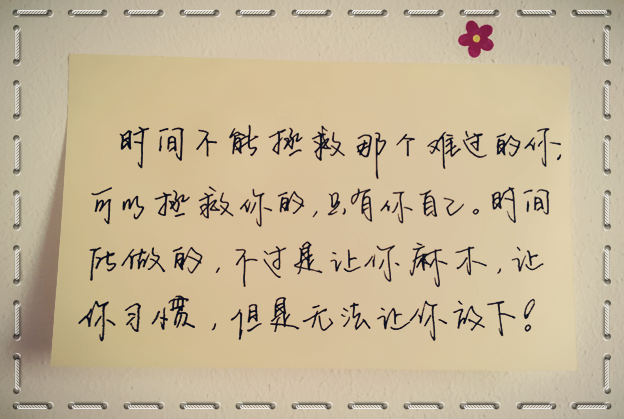 时间不能拯救那个难过的你;
可以拯救你的,只有你自己。时间
所做的,不过是让你麻木,让
你习惯,但是无法让你放下!